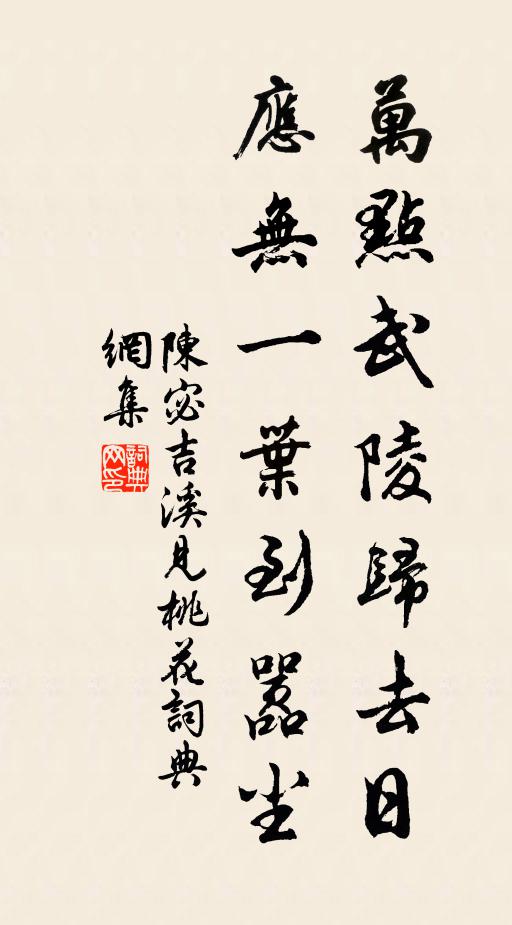 萬點武陵歸去日
應無一葉到嚣尘
陳宓吉溪見桃花詞典
網集
詞典网印